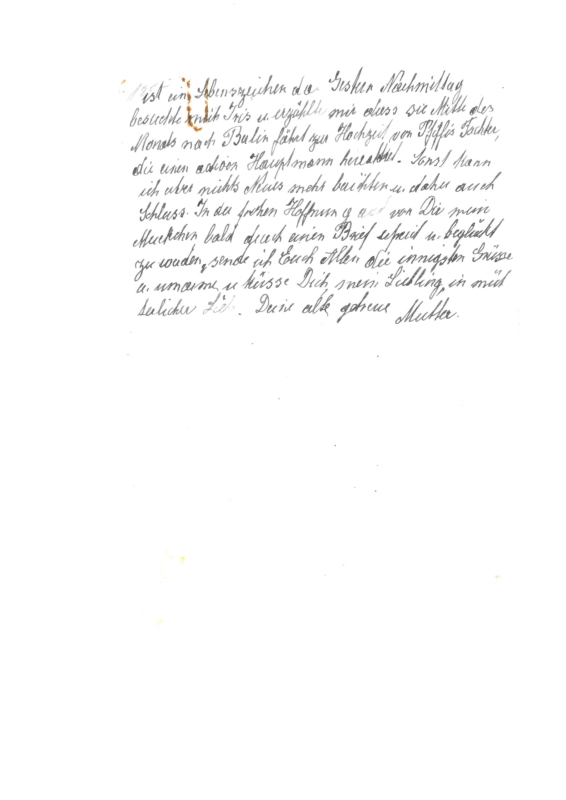 ist ein Lebenszeichen da. Gestern Nachmittag
besuchte mich Iris u. erzählte mir dass sie Mitte des
Monats nach Berlin fährt zur Hochzeit von Pfiffis Tochter,
die einen activen Hauptmann heirathet. Sonst kann
ich aber nichts Neues mehr berichten u. daher auch
Schluss. In der frohen Hoffnung auch von Dir mein
Muckchen bald durch einen Brief erfreut u. beglückt
zu werden, sende ich Euch Allen die innigsten Grüsse
u. umarme u. küsse Dich, mein Liebling, in müt
terlicher Liebe. Deine alte getreue
Mutter.